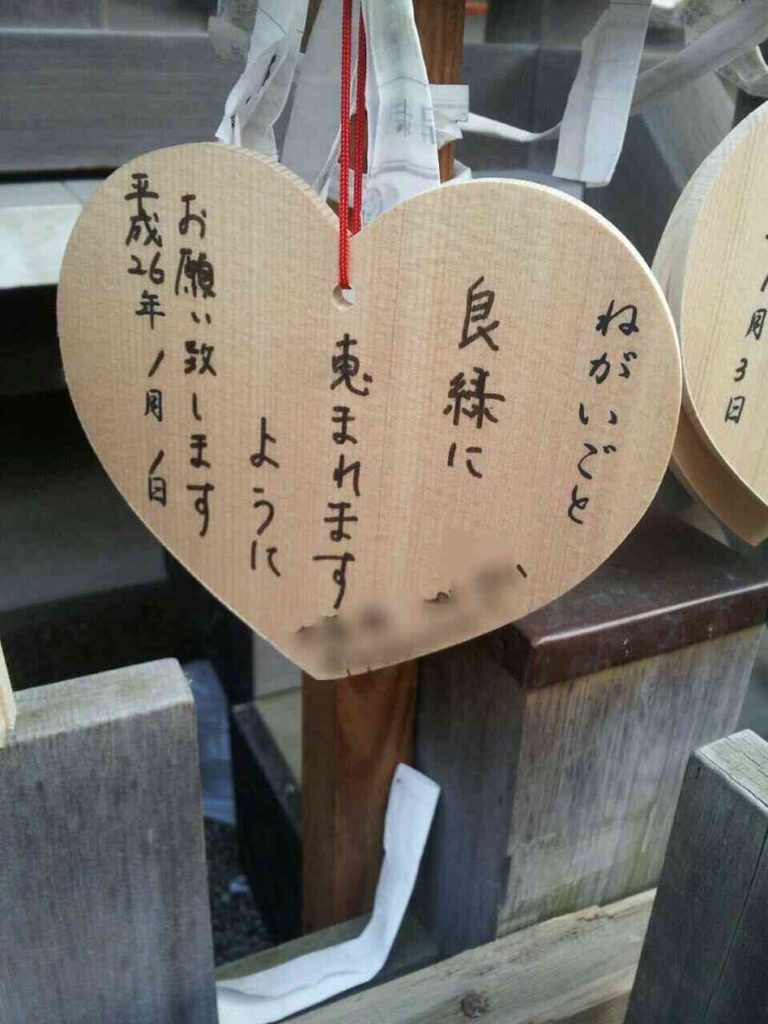 ねがいごと
良緑に
恵まれます
ように
お願い致します
平成26年1月1日
月3日